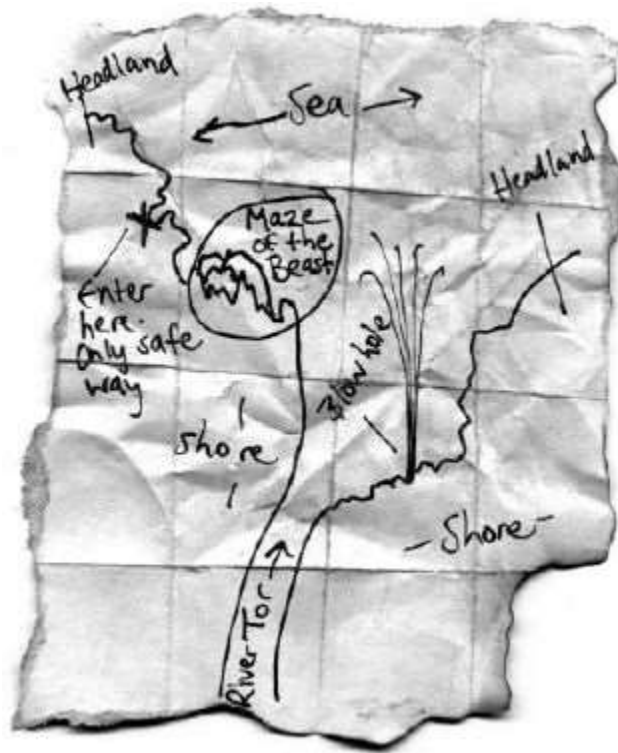 Headland
Sea
Headland
Maze
of the
Beast
Enter
here.
Only safe
way
Blowhole
Shore
- Shore -
River Tor